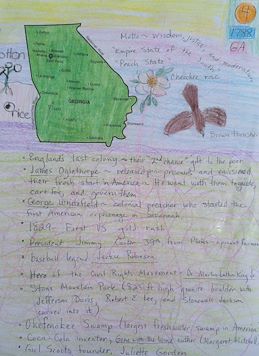 Motto ~ Wisdom, Justice, and Moderation
"Empire State of the South"
"Peach State"
4
1788
GA
Cherokee rose
cotton
rice
GEORGIA
Brown thrasher
• England's last colony ~ their 2nd chance gift to the poor
• James Oglethorpe ~ released prisoners and envisioned
their fresh start in America ~ He went with them to guide,
care for, and govern them
• George Whitefield ~ external preacher who started the
first American orphanage in Savannah
• 1829 First US gold rush
• President Jimmy Carter 39th from Plains ~ peanut farmer
• Baseball legend Jackie Robinson
• Hero of the Civil Rights Movement Dr. Martin Luther King Jr
• Stone Mountain Park (825 ft high granite boulder with
Jefferson Davis, Robert E Lee, and Stonewall Jackson
carved into it)
• Okefenokee Swamp (largest freshwater swamp in America
• Coca-Cola inventor, Gone with the Wind author (Margaret Mitchell)
• Girl Scouts founder, Juliette Gordon